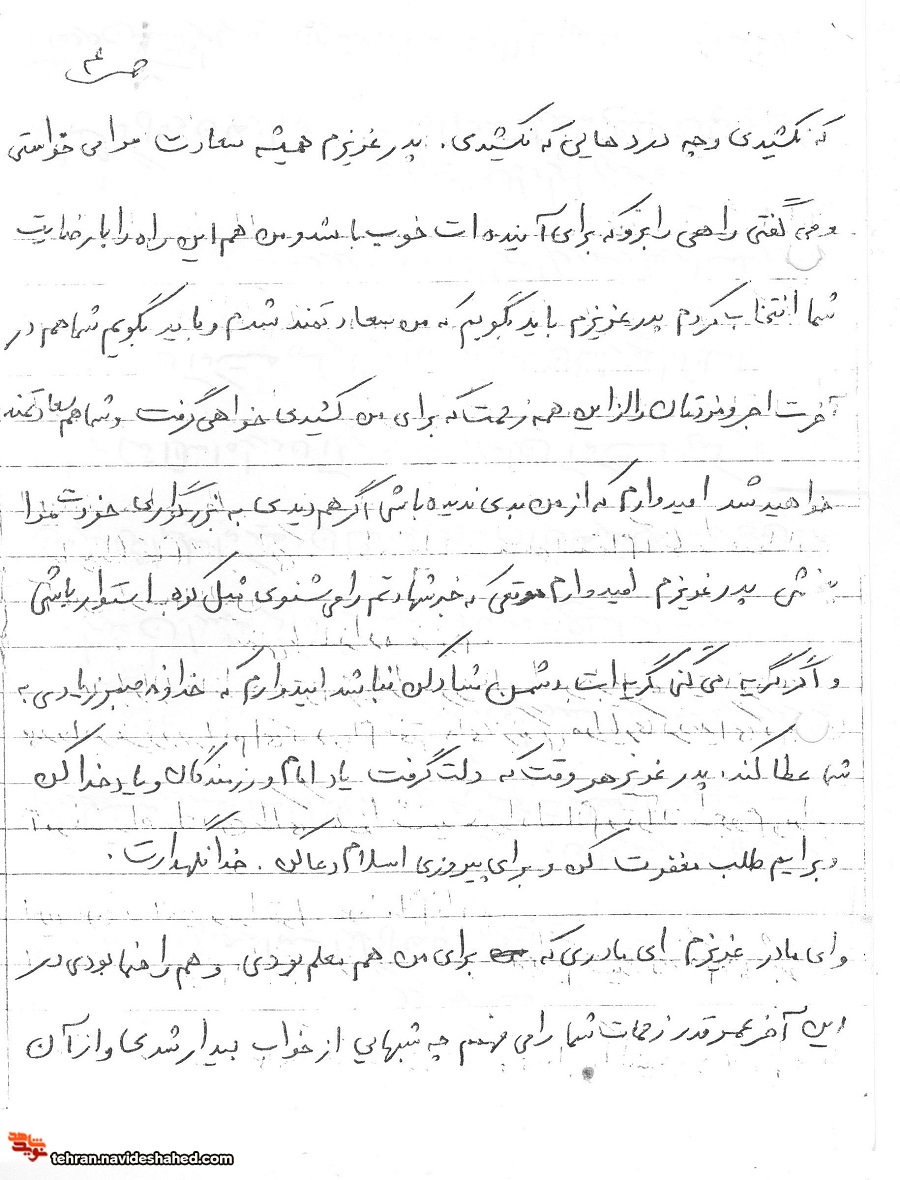 ص ۴
که نکشیدی و چه دردهایی که نکشیدی. پدر عزیزم همیشه سعادت مرا می خواستی
و می گفتی راهی را برو که برای آینده ات خوب باشد و من هم این راه را با رضایت
شما انتخاب کردم پدر عزیزم باید بگویم که من سعادتمند شدم و باید بگویم شما هم در
آخرت اجر و مزدتان را از این همه زحمت که برای من کشیدی خواهی گرفت و شما هم سعادتمند
خواهید شد امیدوارم که از من بدی ندیده باشی اگر هم دیدی به بزرگواری خودت مرا
ببخشی پدر عزیزم امیدوارم وقتی که خبر شهادتم را می شنوی مثل کوه استوار باشی
و اگر گریه می کنی گریه ات دشمن شادکن نباشد امیدوارم که خداوند صبر زیادی به
شما عطا کند. پدر عزیز هر وقت که دلت گرفت یاد امام و رزمندگان و یاد خدا کن
و برایم طلب مغفرت کن و برای پیروزی اسلام دعا کن. خدا نگهدارت.
وای مادر عزیزم ای مادری که برای من هم معلم بودی و هم راهنما بودی در
این آخر عمر قدر زحمات شما را می فهمم چه شبهایی از خواب بیدار شدی و از آن
نوید شاهد
tehran.navideshahed.com